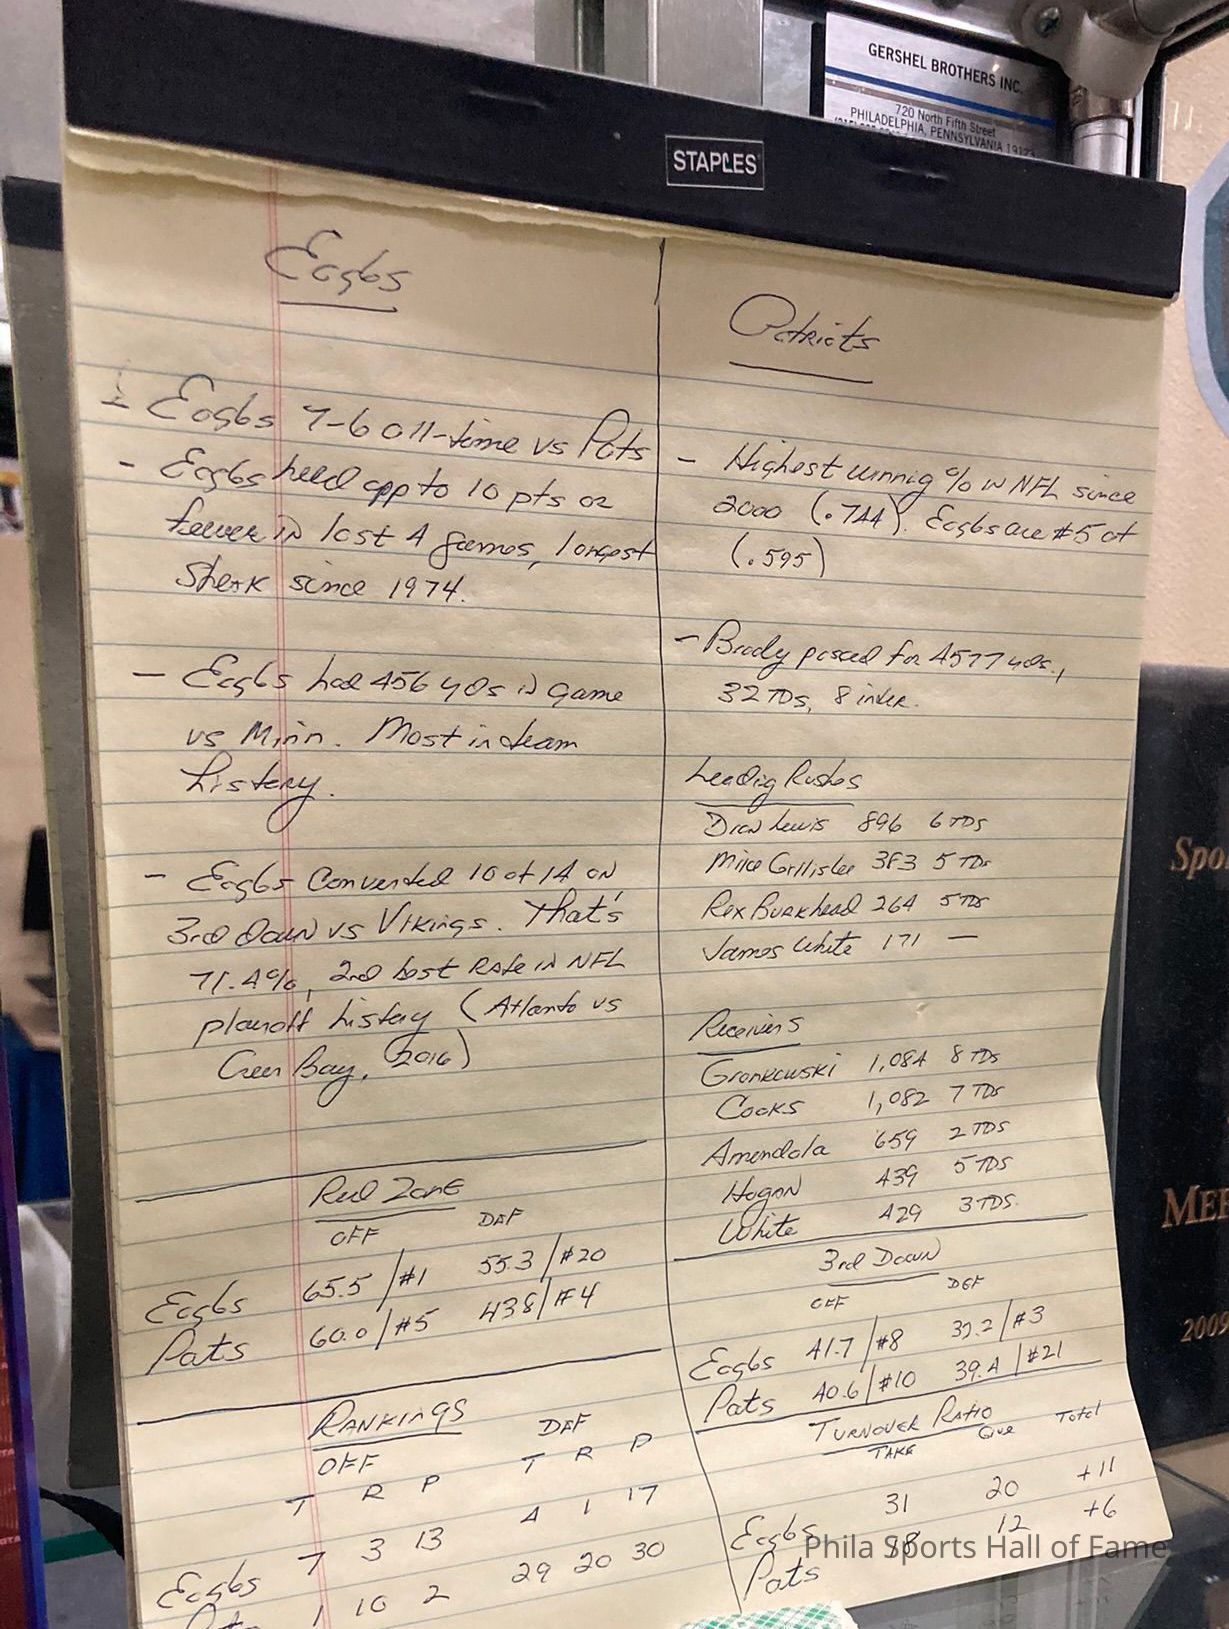 GERSHEL BROTHERS INC.
720 North Fifth Street
PHILADELPHIA, PENNSYLVANIA 19123
STAPLES
Eagles
- Eagles 7-6 all-time vs Pats
- Eagles held opp to 10 pts or
fewer in last 4 games, longest
streak since 1974.
- Eagles had 456 yds in game
vs Minn. Most in team
history.
- Eagles converted 10 of 14 on
3rd down vs Vikings. That's
71.4%, 2nd best rate in NFL
playoff history (Atlanta vs
Green Bay, 2016)
Red Zone
OFF DEF
Eagles 65.5/#1 55.3/#20
Pats 60.0/#5 43.8/#4
RANKINGS
OFF DEF
T R P T R P
Eagles 7 3 13 4 1 17
Pats 1 10 2 29 20 30
Patriots
- Highest winnig % in NFL since
2000 (.744). Eagles are #5 at
(.595)
- Brady passed for 4577 yds.,
32 TDs, 8 inter.
Leading Rushes
Dion Lewis 896 6 TDs
Mike Gillislee 383 5 TDs
Rex Burkhead 264 5 TDs
James White 171 —
Receivers
Gronkowski 1,084 8 TDs
Cooks 1,082 7 TDs
Amendola 659 2 TDS
Hogan 439 5 TDs
White 429 3 TDS.
3rd Down
OFF DEF
Eagles 41.7/#8 32.2/#3
Pats 40.6/#10 39.4/#21
TURNOVER RATIO
TAKE Give Total
Eagles 31 20 +11
Pats 18 12 +6
Spo
MEE
2009
Phila Sports Hall of Fame